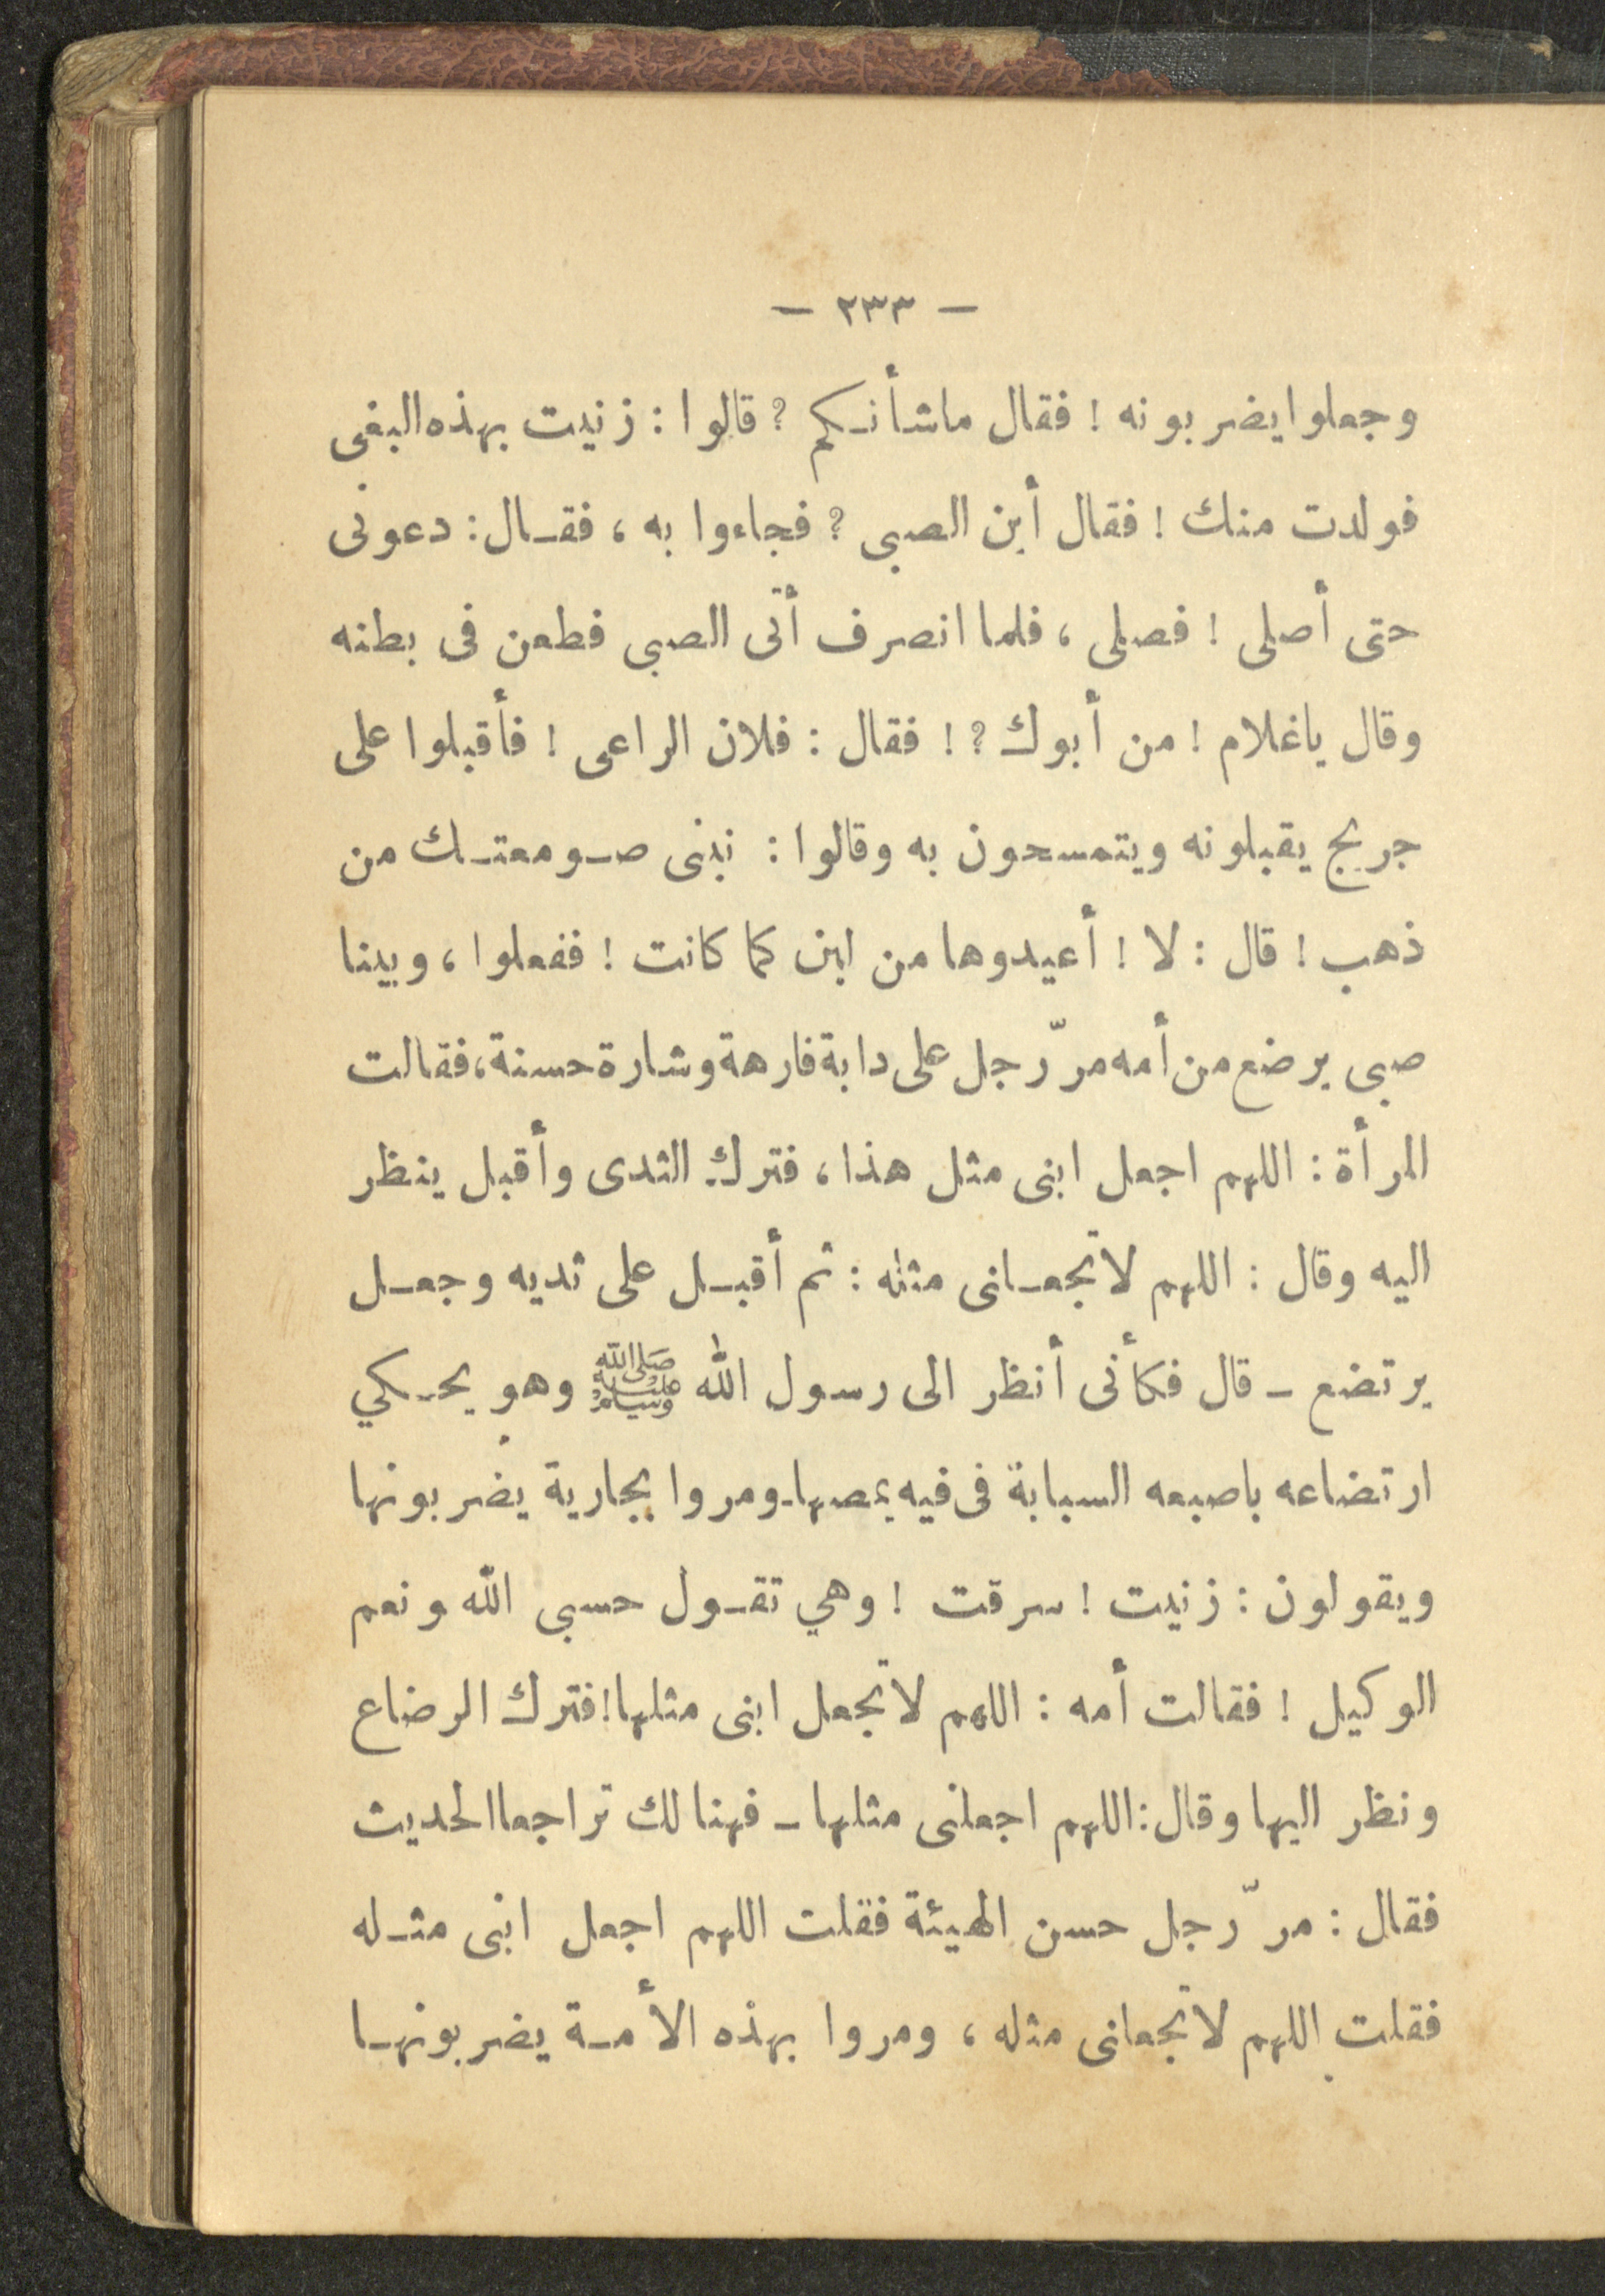 — ٢٣٣ —
وجعلوا يضربونه ! فقال ماشأنكم ؟ قالوا : زنيت بهذه البغى
فولدت منك ! فقال أين الصبى ؟ فجاءوا به ، فقال : دعونى
حتى أصلى ! فصلى ، فلما انصرف أتى الصبى فطعن فى بطنه
وقال ياغلام ! من أبوك ؟ ! فقال : فلان الراعى ! فأقبلوا على
جريج يقبلونه ويتمسحون به وقالوا : نبنى صومعتك من
ذهب ! قال : لا ! أعيدوها من لبن كما كانت ! ففعلوا ، وبينا
صبى يرضع من أمه مرّ رجل على دابة فارهة وشارة حسنة ، فقالت
المرأة : اللهم اجعل ابنى مثل هذا ، فترك الثدى وأقبل ينظر
اليه وقال : اللهم لاتجعلنى مثله : ثم أقبل على ثديه وجعل
يرتضع – قال فكأنى أنظر الى رسول الله ﷺ وهو يحكي
ارتضاعه باصبعه السبابة فى فيه يمصها – ومروا بجارية يضربونها
ويقولون : زنيت ! سرقت ! وهي تقول حسبى الله ونعم
الوكيل ! فقالت أمه : اللهم لاتجعل ابنى مثلها ! فترك الرضاع
ونظر اليها وقال : اللهم اجعلنى مثلها – فهنالك تراجعا الحديث
فقال : مرّ رجل حسن الهيئة فقلت اللهم اجعل ابنى مثله
فقلت اللهم لاتجعلنى مثله ، ومروا بهذه الأمة يضربونها